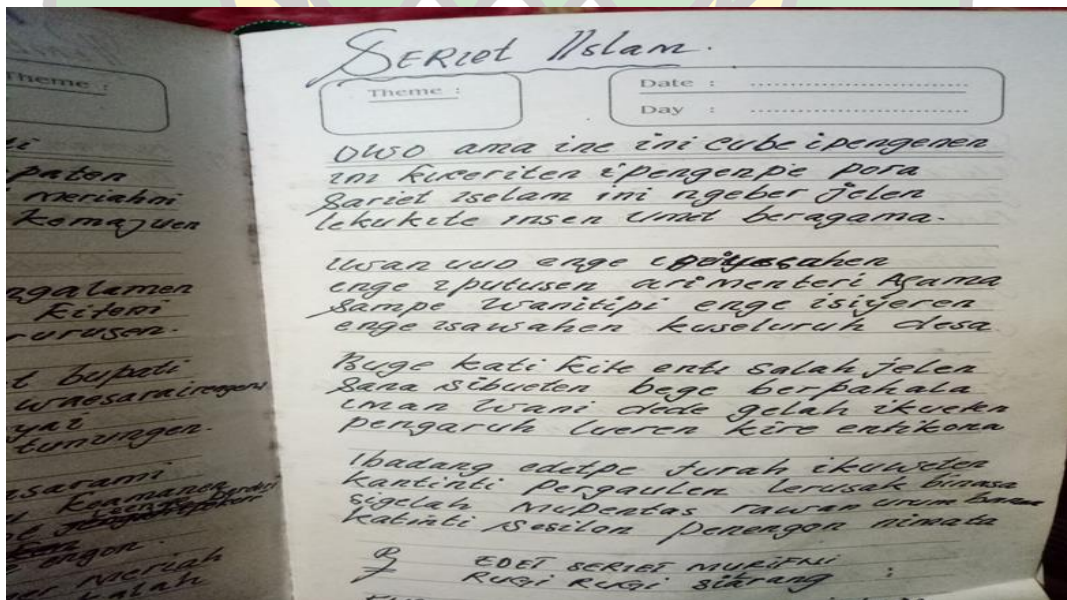 SERIET IIslam.
Theme :
Theme :
Date :
Day :
paten
meriahni
Kemajuen
ngalamen
Kitoni
rurusen.
t bupati
yai
tumungen.
sarami
Keamanen
engon.
Meriah
alah
owo ama ine ini cube ipengenen
ini kuceriten ipengenpe pora
Sariet iselam ini ngeber jelen
lekukite insen Umet beragama.
uwan uuo enge
enge iputusen arimenteri Agama
Sampe wanitipi enge isiyeren
enge isawahen kuseluruh desa
Buge kati kite enti salah jelen
Sana sibueten bege berpahala
iman wani dede gelah ikueken
pengaruh lueren kire entikona
Ibadang edetpe turah ikuweten
kantinti pergaulen lerusak binasa
sigelah mupentas rawan urum banan
Katinti sesilon penengon nimata
EDET SERIET MURIFNI
RUGI RUGI sitarang :